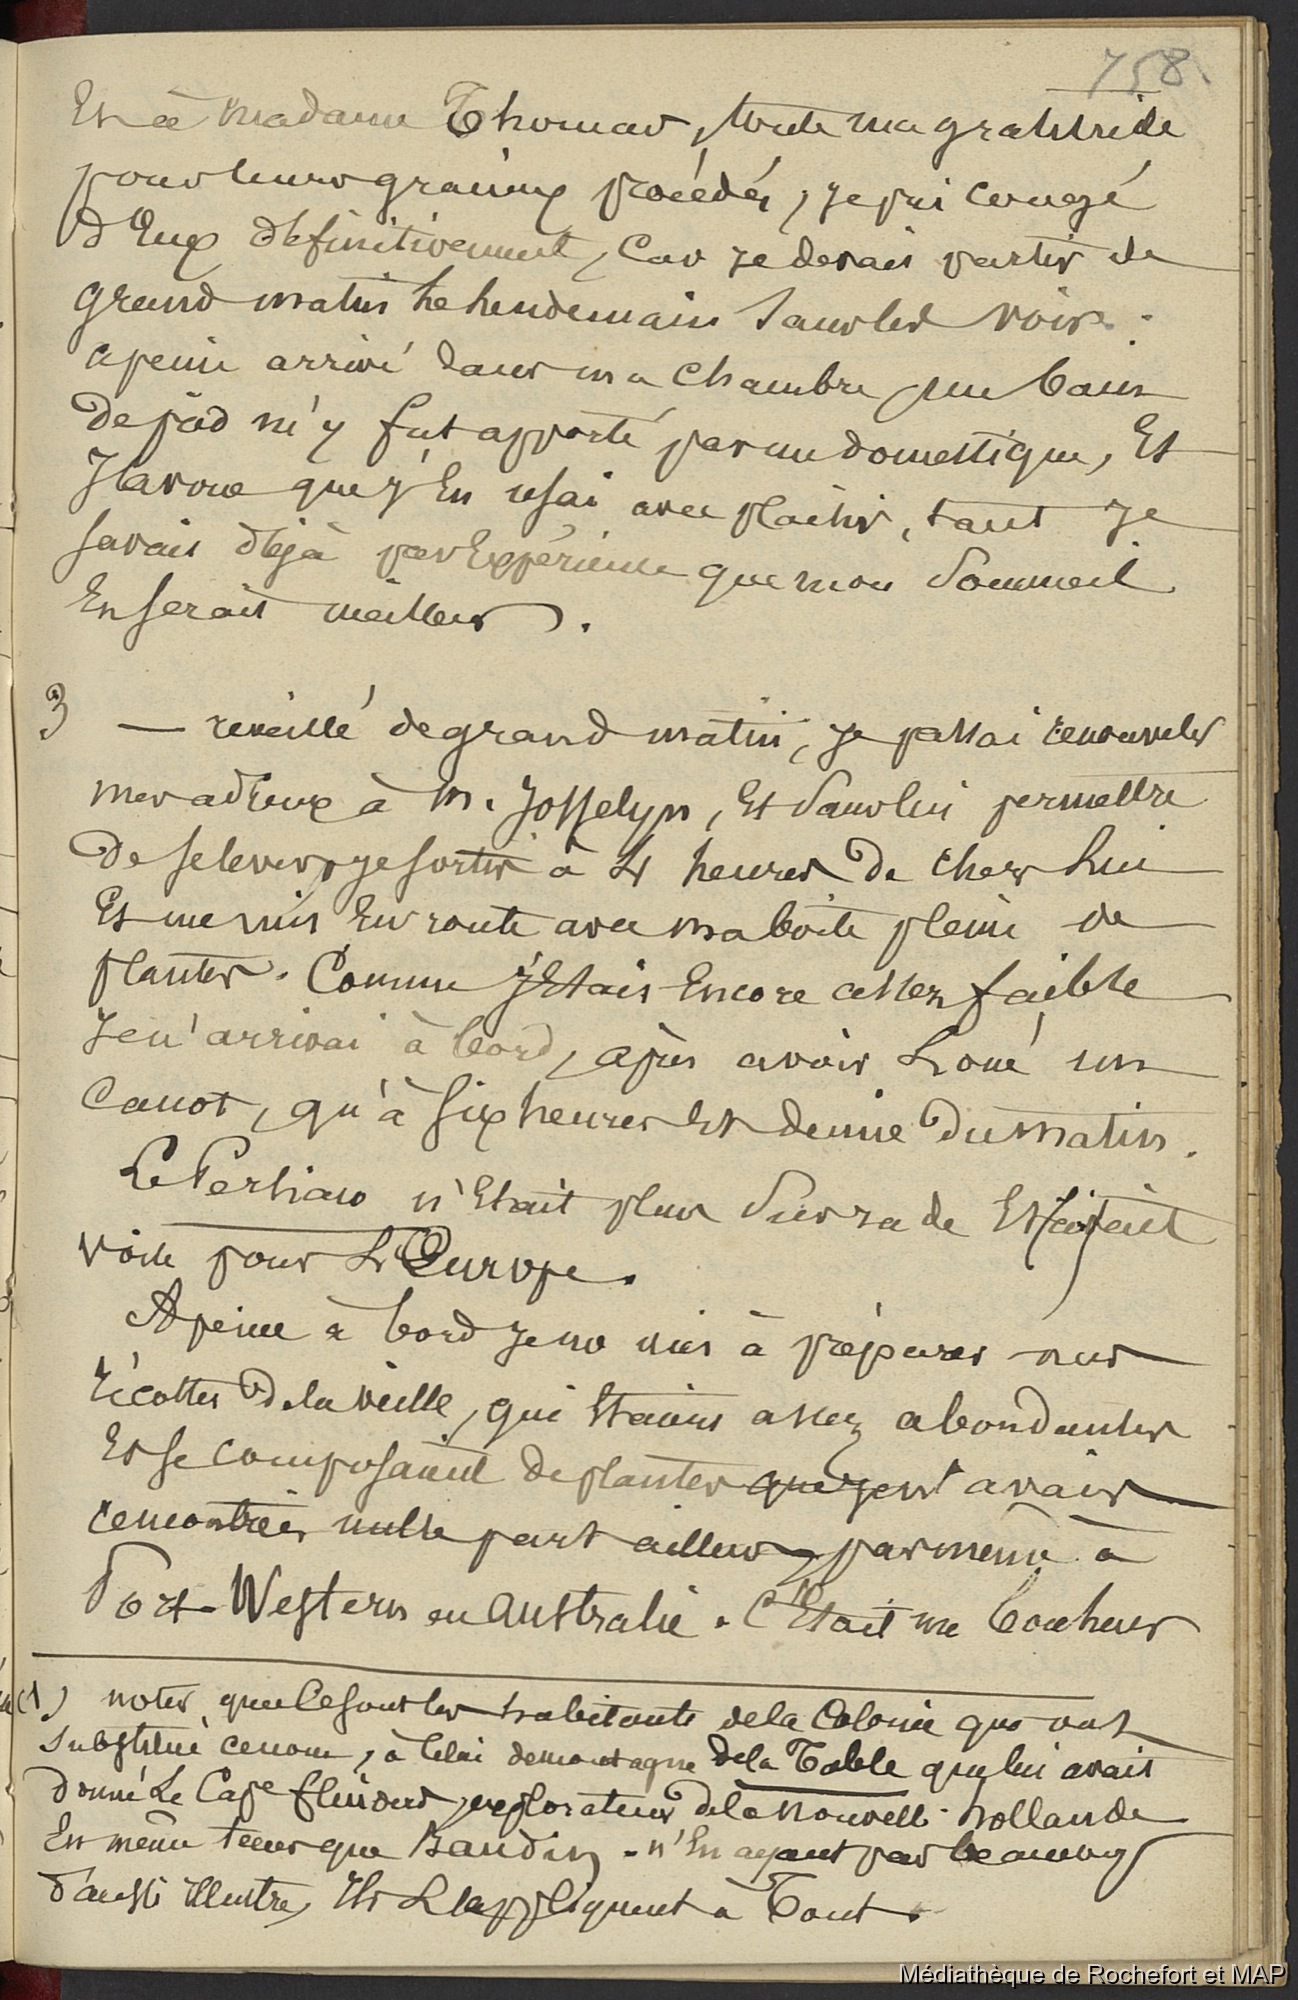 758.
Et à Madame Thomas, toute ma gratitude
pour leurs gracieux procédés, je pris congé
d'Eux définitivement, Car je devais partir de
grand matin le lendemain sans les voir.
apeine arrivé dans ma chambre, un bain
de pied m'y fut apporté par un domestique, Et
J'avoue que j'En usai avec plaisir, tant je
savais déjà par Expérience que mon Sommeil
En serait meilleur.
3 — reveillé de grand matin, je passai renouveler
mes adieux à M. Josselyn, Et sans lui permettre
de se lever, je sortis à 4 heures de chez lui
Et me mis En route avec ma boite pleine de
plantes. Comme j'Etais Encore assez faible
Je n'arrivai à bord, après avoir Loué un
Canot, qu'à six heures Et demie du matin.
Le Persian n'Etait plus Sur rade Et faisait
voile pour L'Europe.
Apeine à bord je me mis à préparer mes
récoltes de la veille, qui Etaient assez abondantes
Et se composaient de plantes que je n'avais
rencontrées nulle part ailleurs, pas même à
Port-Western en Australie. C'Etait un bonheur
(1) noter que ce sont les habitants de la Colonie qui ont
substitué ce nom, à celui de montagne de la Table que lui avait
donné Le Capne flinders, explorateur de la Nouvelle-hollande
En même tems que Baudin. n'En ayant pas beaucoup
d'aussi illustre, Ils L'appliquent à Tout.
Médiathèque de Rochefort et MAP